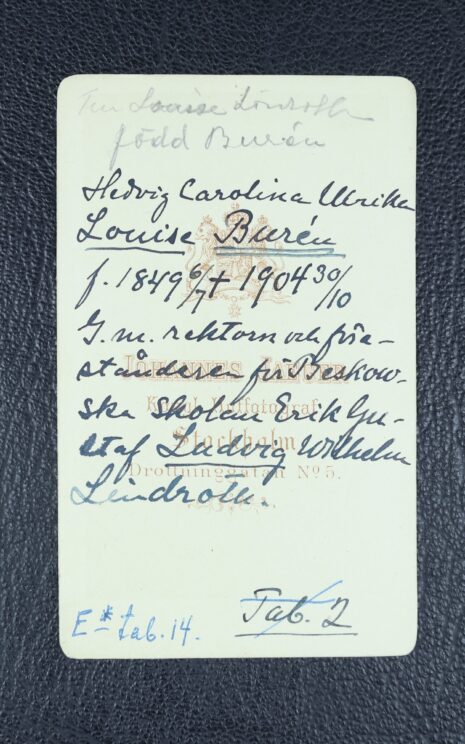 Fru Louise Lönroth
född Burén
Hedvig Carolina Ulrika
Louise Burén
f. 1849 6/7 † 1904 30/10
G. m. rektorn och före-
ståndaren för Beskow-
JOHANNES JAEGER
ska skolan Erik Gu-
Kongl. Hoffotograf
staf Ludvig Wilhelm
Stockholm
Drottninggatan No 5.
Lindroth.
E* tab. 14.
Tab. 2